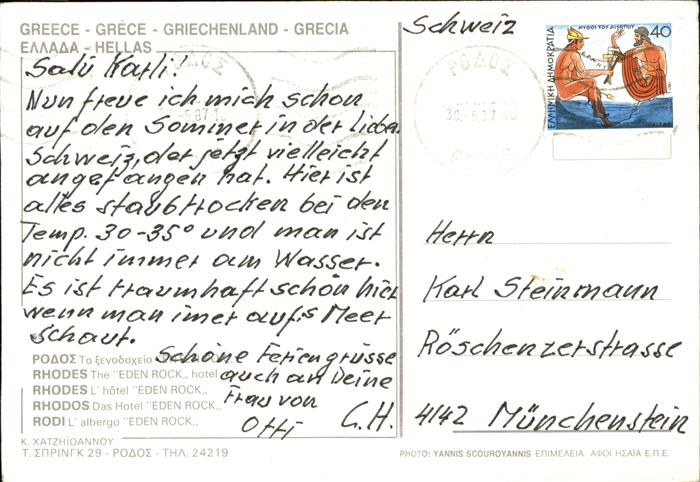 GREECE - GRÉCE - GRIECHENLAND - GRECIA
ΕΛΛΑΔΑ - HELLAS
Salü Karli!
Nun freue ich mich schon
auf den Sommer in der lieben
Schweiz, der jetzt vielleicht
angefangen hat. Hier ist
alles staubtrocken bei den
Temp. 30-35° und man ist
nicht immer am Wasser.
Es ist traumhaft schön hier
wenn man imer auf's Meer
schaut.
Schöne Feriengrüsse
auch an Deine
Frau von
Otti G.H.
ΡΟΔΟΣ Το ξενοδοχείο
RHODES The "EDEN ROCK,, hotel
RHODES L' hôtel "EDEN ROCK,,
RHODOS Das Hotel "EDEN ROCK,,
RODI L' albergo "EDEN ROCK,,
Κ. ΧΑΤΖΗΪΩΑΝΝΟΥ
Τ. ΣΠΡΙΝΓΚ 29 - ΡΟΔΟΣ - ΤΗΛ. 24219
Schweiz
ΡΟΔΟΣ
30.-6.87-18
ΜΥΘΟΙ ΤΟΥ ΑΙΣΩΠΟΥ
40
ΕΛΛΗΝΙΚΗ ΔΗΜΟΚΡΑΤΙΑ
Herrn
Karl Steinmann
Röschenzerstrasse
4142 Münchenstein
PHOTO: YANNIS SCOUROYANNIS - ΕΠΙΜΕΛΕΙΑ: ΑΦΟΙ ΗΣΑΪΑ Ε.Π.Ε.